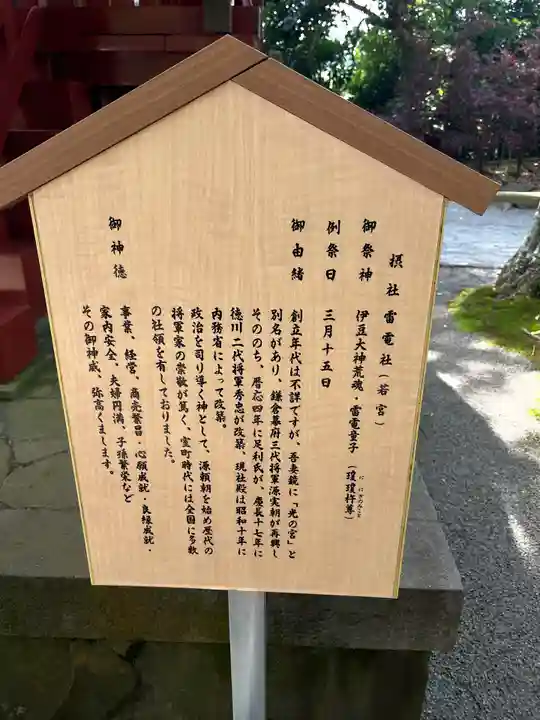 摂社 雷電社（若宮）
御祭神 伊豆大神荒魂・雷電童子（瓊瓊杵尊）
ににぎのみこと
例祭日 三月十五日
御由緒 創立年代は不詳ですが、吾妻鏡に「光の宮」と
別名があり、鎌倉幕府三代将軍源実朝が再興し
そののち、暦応四年に足利氏が、慶長十七年に
徳川二代将軍秀忠が改築、現社殿は昭和十年に
内務省によって改築。
政治を司り導く神として、源頼朝を始め歴代の
将軍家の崇敬が篤く、室町時代には全国に多数
の社領を有しておりました。
御神徳 事業、経営、商売繁昌・心願成就・良縁成就・
家内安全、夫婦円満、子孫繁栄など
その御神威、弥高くまします。